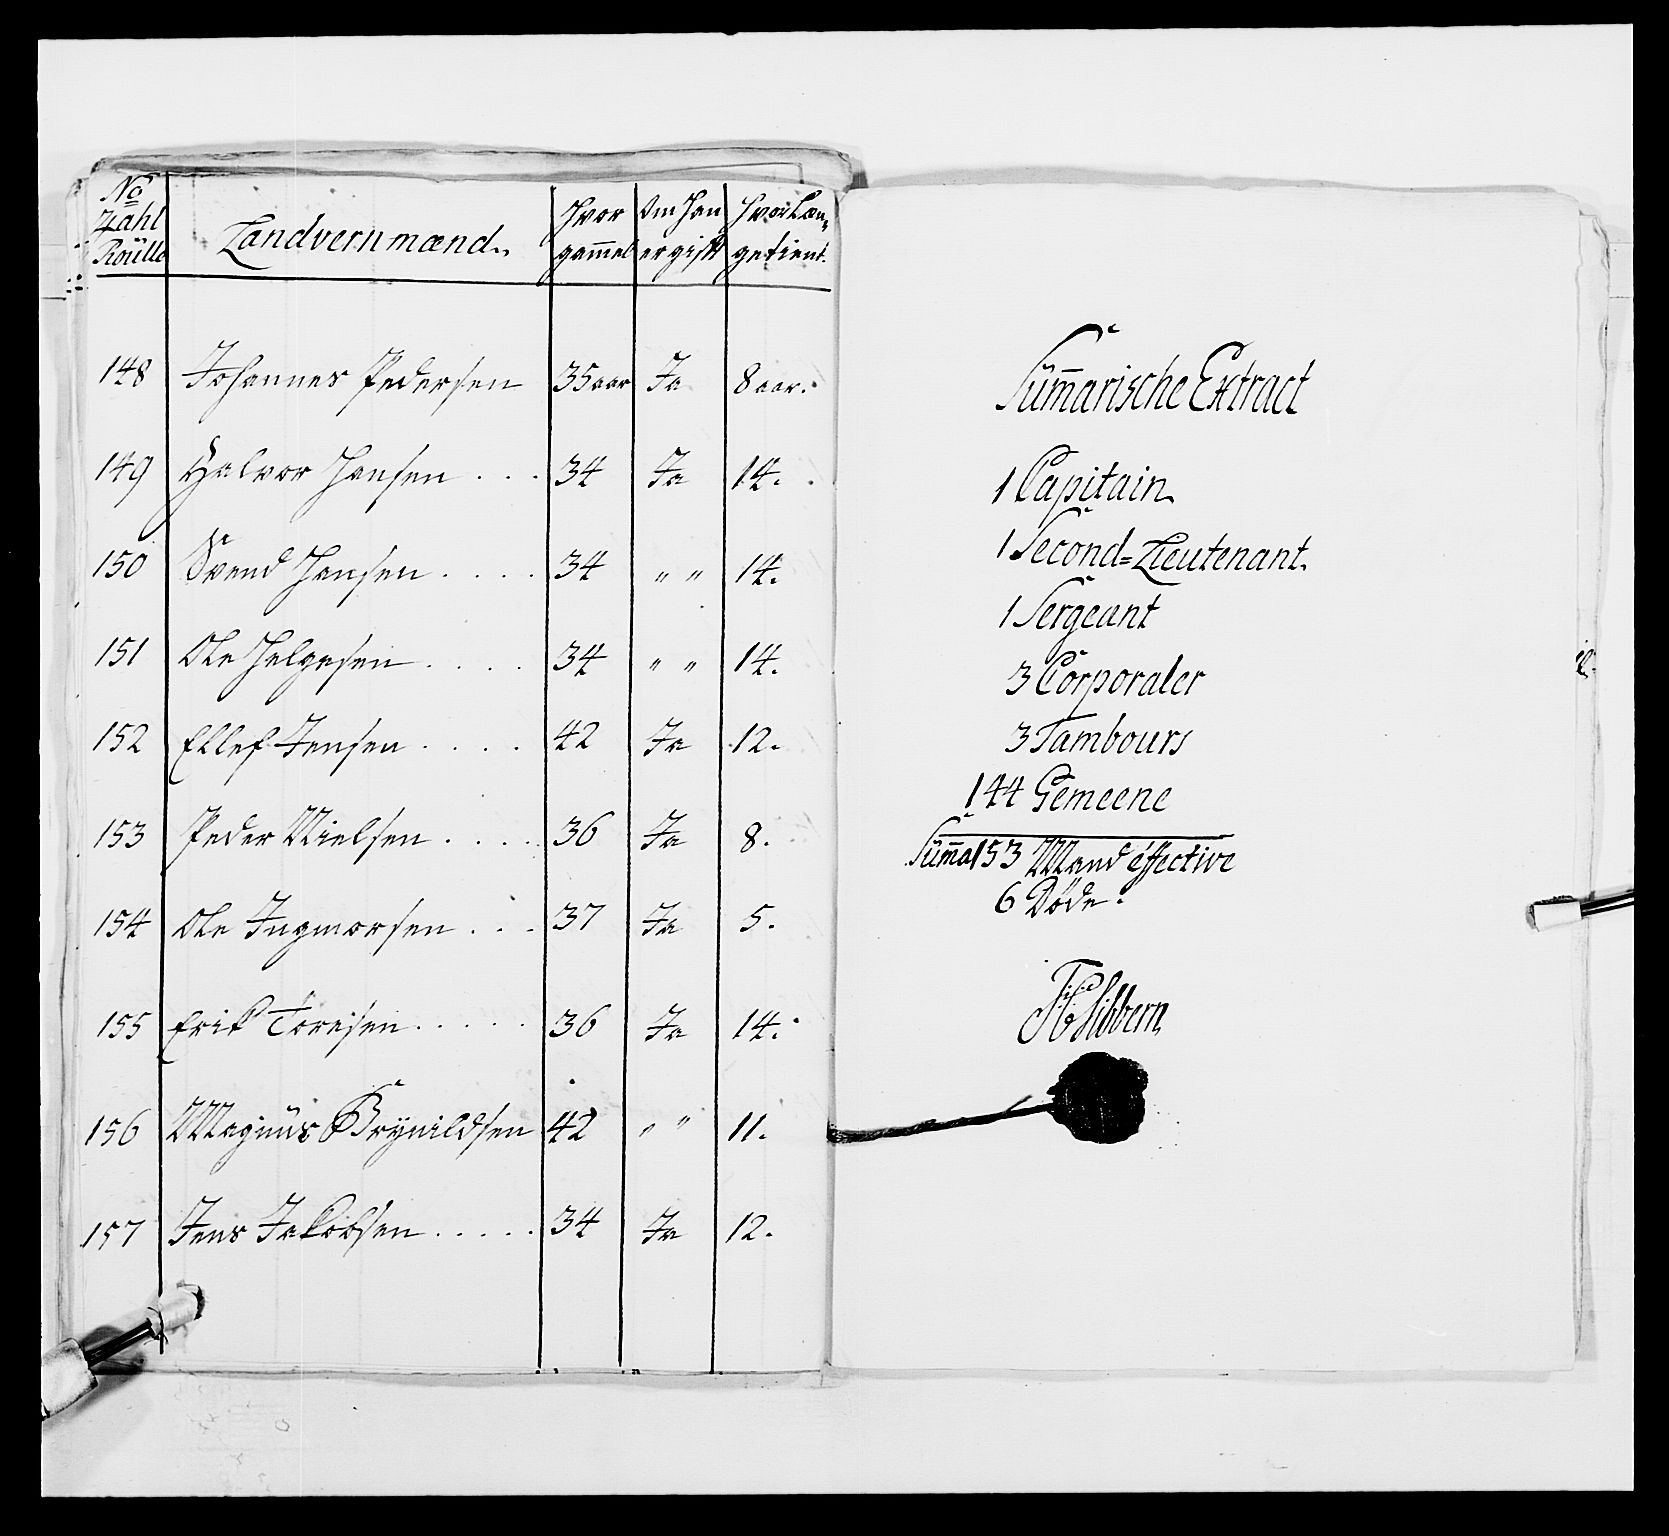 No Zahl Roülle | Landvernmænd. | Hvor gam̄el | Om Han er gift | Hvor Længe tient.
148 Johannes Pedersen 35 aar Ja 8 aar.
149 Halvor Hansen . . . 34 Ja 14.
150 Svend Hansen . . . . 34 " " 14.
151 Ole Helgesen . . . . 34 " " 14.
152 Ellef Jensen . . . . 42 Ja 12.
153 Peder Nielsen . . . . 36 Ja 8.
154 Ole Ingmorsen . . . 37 Ja 5.
155 Erik Toresen . . . . . 36 Ja 14.
156 Magnus Brynildsen 42 " " 11.
157 Jens Jakobsen . . . . . 34 Ja 12.
Sum̄arische Extract
1 Capitain
1 Second=Lieutenant.
1 Sergeant
3 Corporaler
3 Tambours
144 Gemeene
Sum̄a 153 Mand effective
6 Döde.
Sibbern